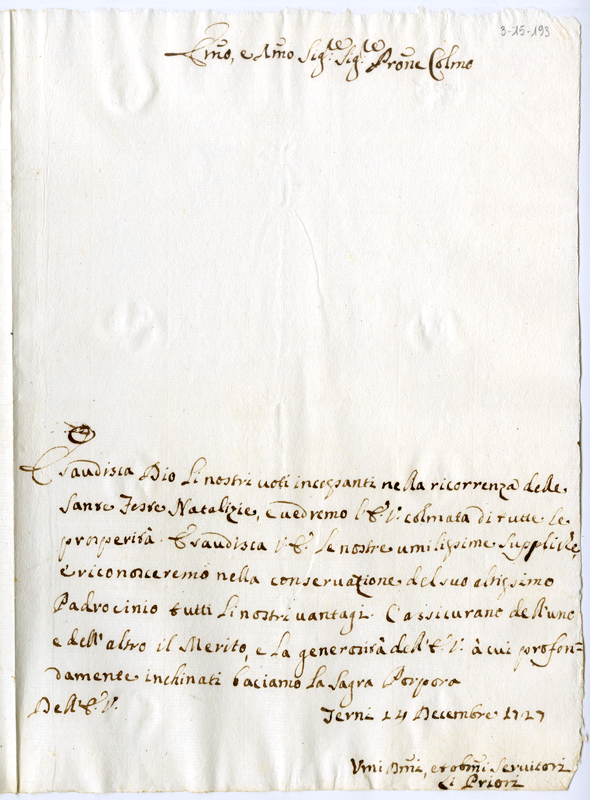 3-15-193
Emo, e Rmo Sig.re Sig.re Prone Colmo
Esaudisca Dio li nostri voti incessanti nella ricorrenza delle
Sante Feste Natalizie, e vedremo l'E.V. colmata di tutte le
prosperità. Esaudisca V.E. le nostre umilissime suppliche,
e riconosceremo nella conservazione del suo altissimo
Padrocinio tutti li nostri vantagi. C'assicurano dell'uno
e dell'altro il Merito, e la generosità dell'E.V. à cui profon=
damente inchinati baciamo la Sagra Porpora
Dell'E.V. Terni 24 Decembre 1727
Vmi Dmi, et obmi Servitori
Li Priori